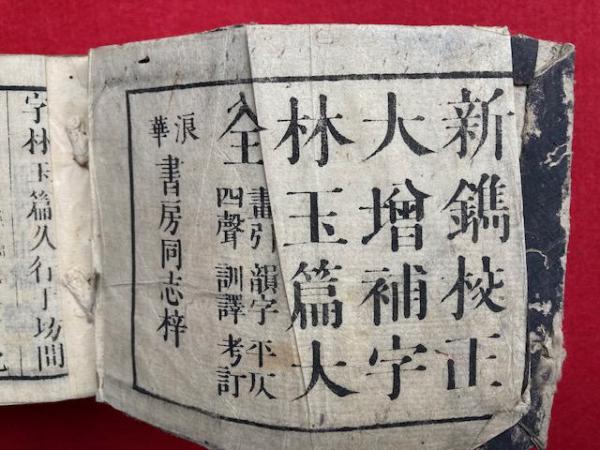 新鐫校正
大増補字
林玉篇大
全
畫引 韻字 平仄
四聲 訓譯 考訂
浪華
書房同志梓
字林玉篇久行于坊間